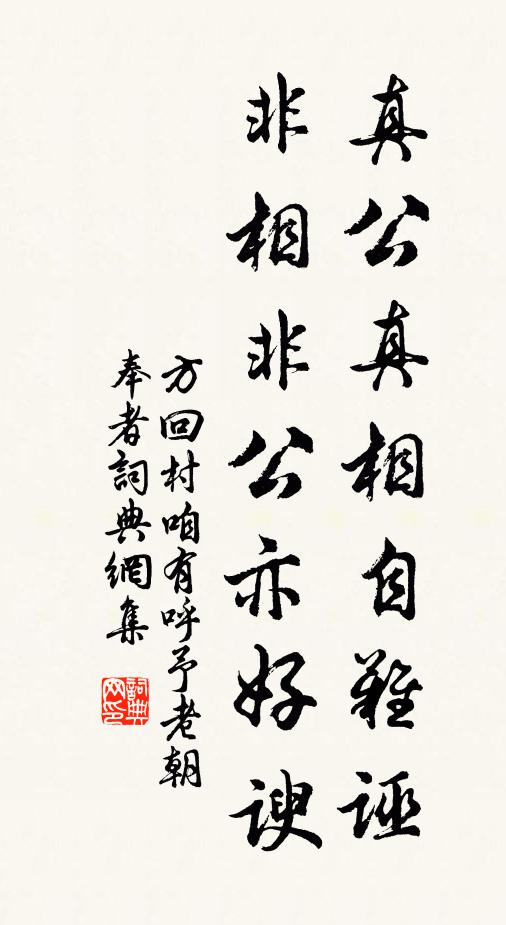 真公真相自難誣
非相非公亦好謏
方回村咱有呼予老朝
奉者詞典網集
詞典网印